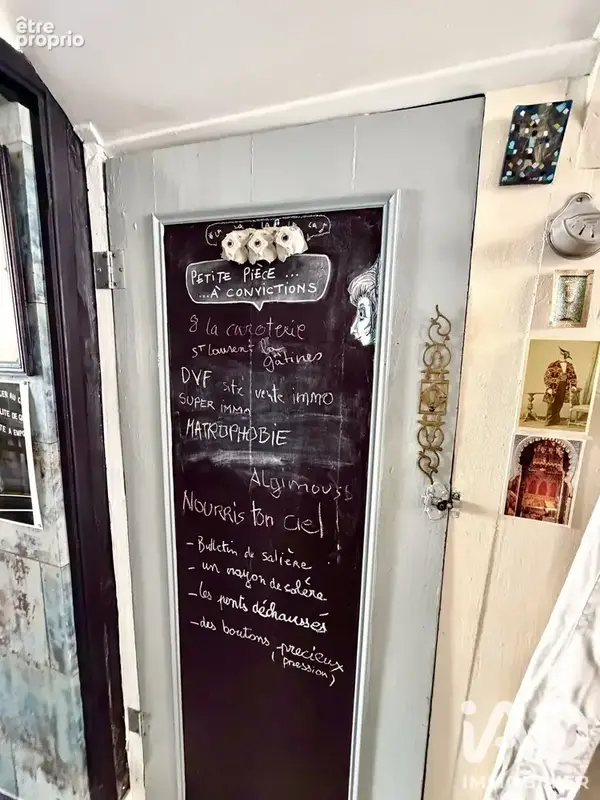 être
proprio
PETITE PIÈCE ...
... À CONVICTIONS
8 la caroterie
St Laurent la
gâtines
DVF sté vente immo
SUPER IMMO
MATROPHOBIE
Algimouss
NOURRIS ton ciel
- Bulletin de salière
- un rayon de colère
- les ponts déchaussés
- des boutons précieux
(pression)
iAD
IMMOBILIER